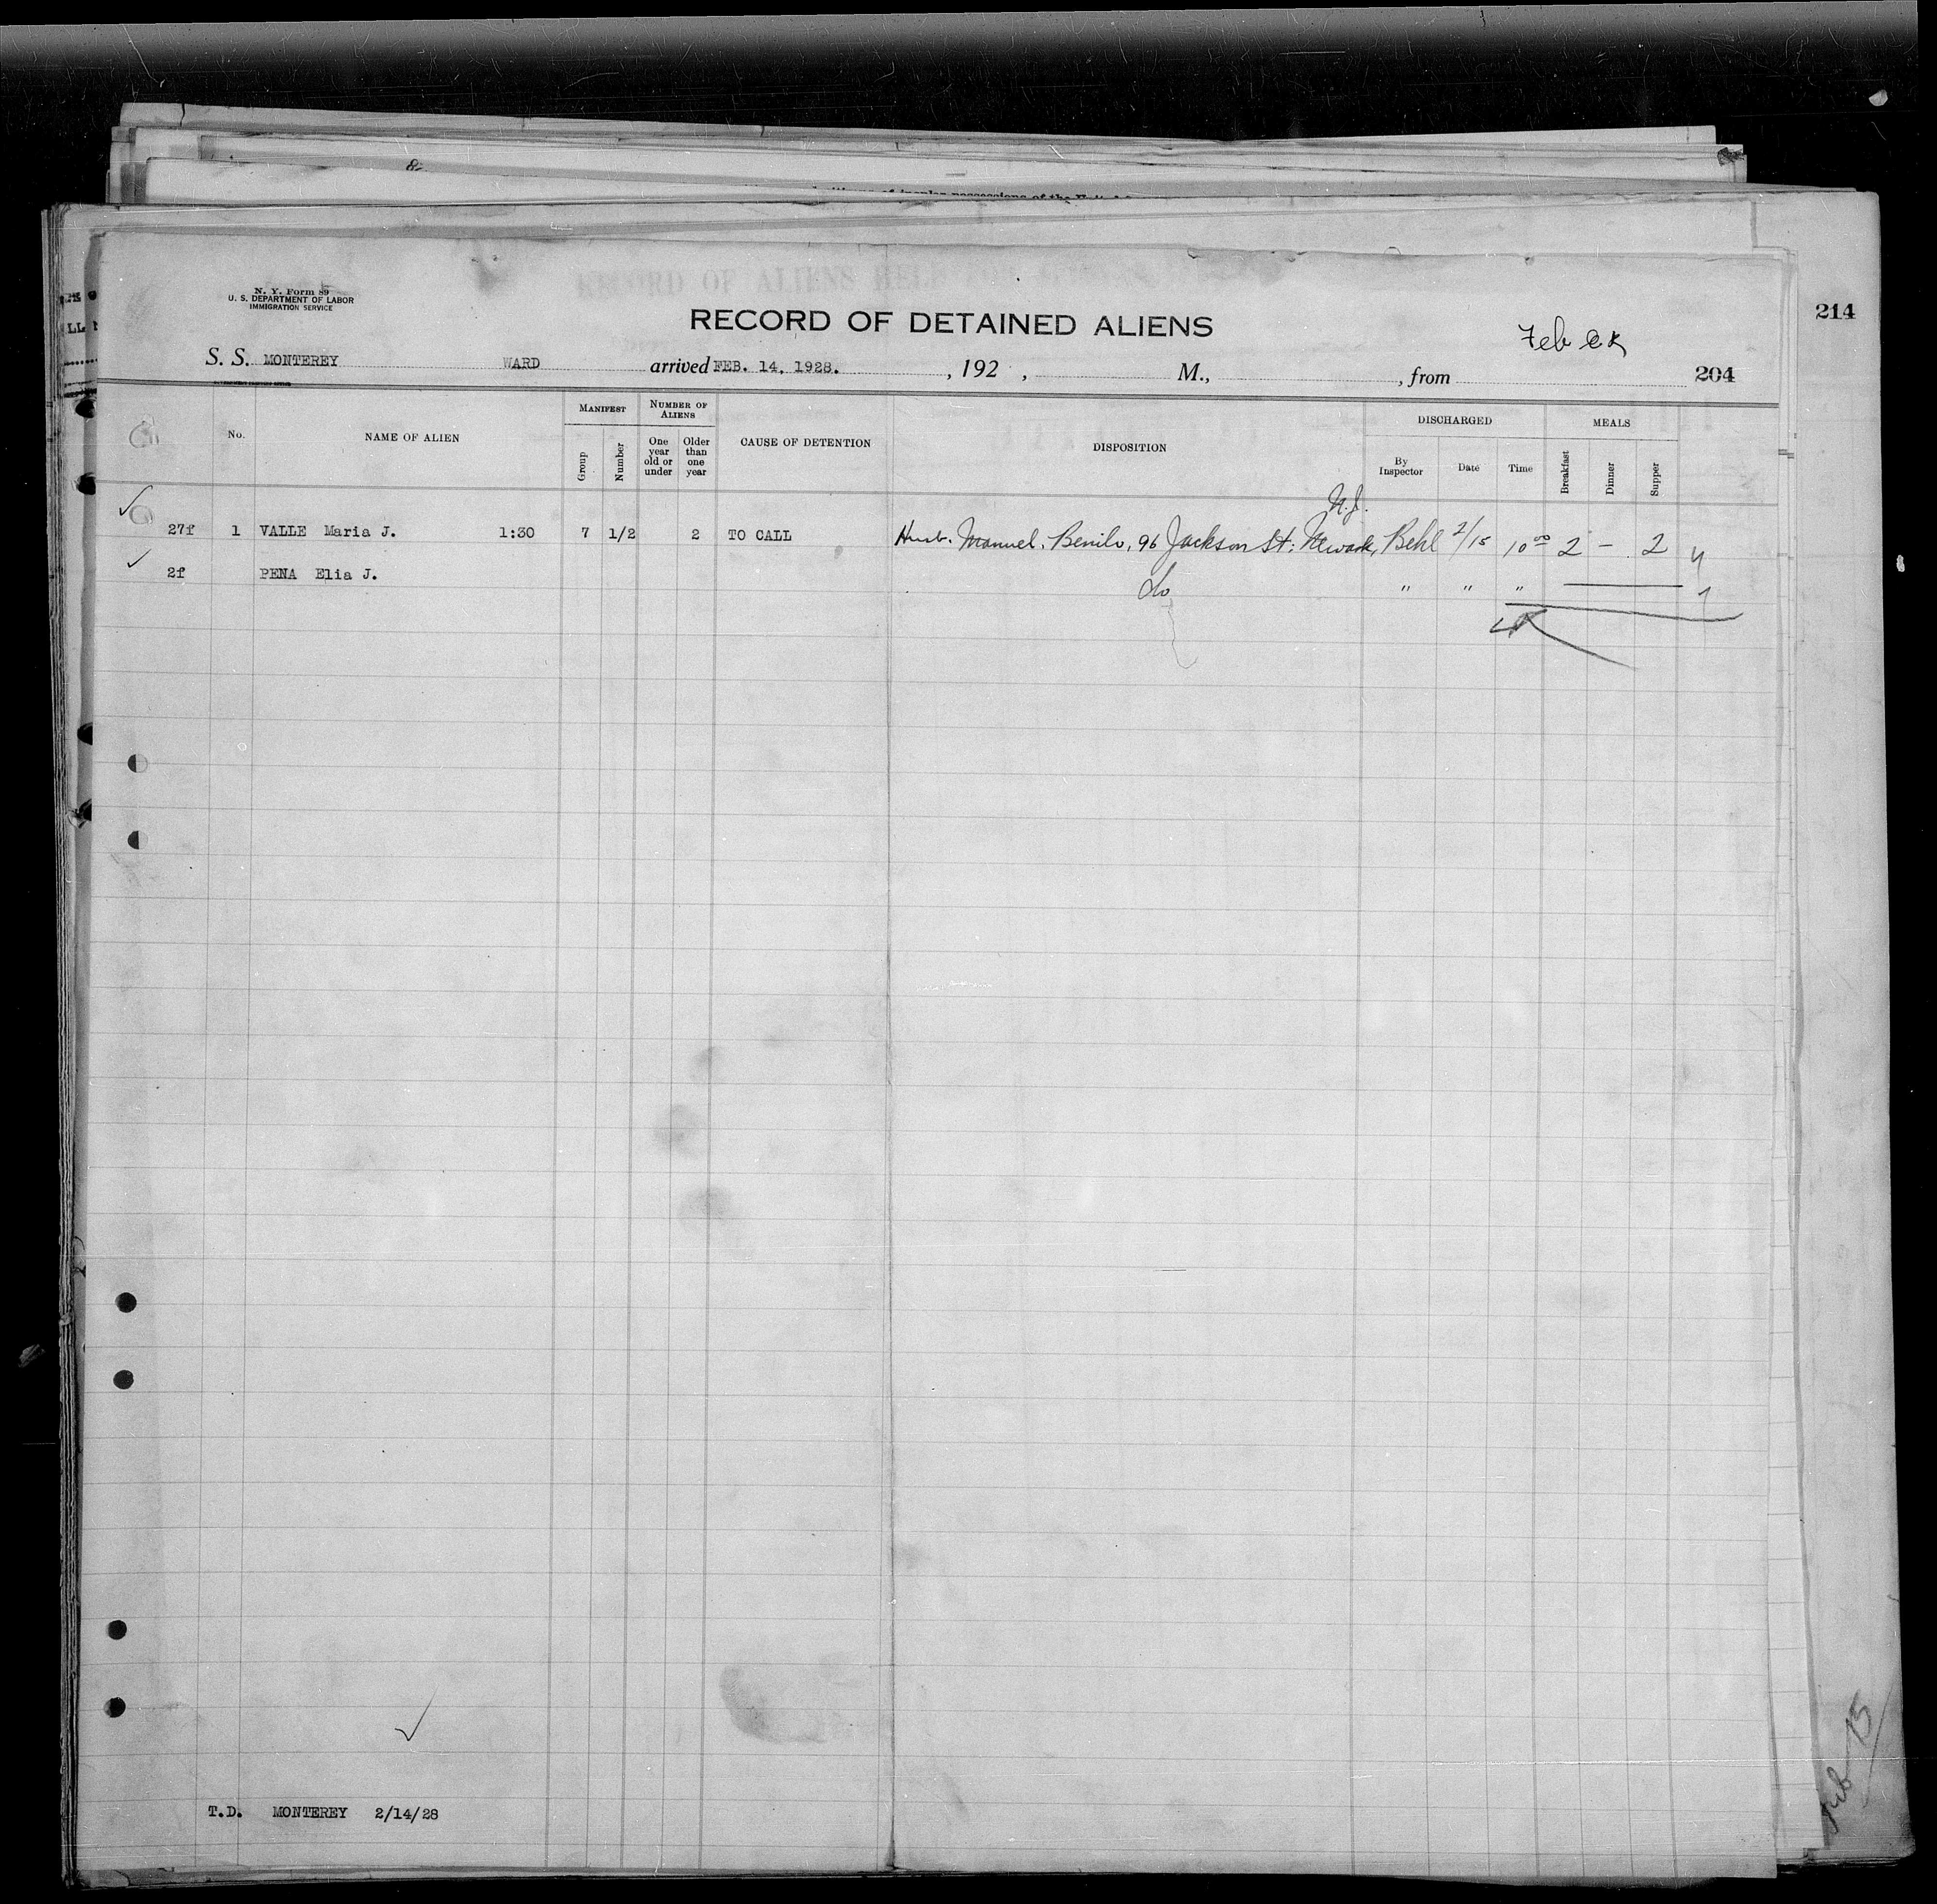 214
N. Y. Form 89
U. S. DEPARTMENT OF LABOR
IMMIGRATION SERVICE
RECORD OF DETAINED ALIENS
S. S. MONTEREY WARD arrived FEB. 14, 1928. , 192 , M., , from 204
No. NAME OF ALIEN MANIFEST Group Number NUMBER OF ALIENS One year old or under Older than one year CAUSE OF DETENTION DISPOSITION DISCHARGED By Inspector Date Time MEALS Breakfast Dinner Supper
N.J.
27f 1 VALLE Maria J. 1:30 7 1/2 2 TO CALL Husb. Manuel, 96 Jackson St; Newark, Behl 2/15 10 00 2 – 2
2f PENA Elia J. do " " "
T.D. MONTEREY 2/14/28
Feb 15